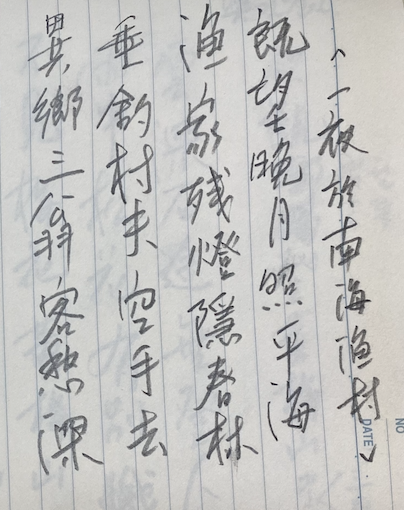 〈一夜於南海渔村〉
既望晚月照平海
渔家残燈隱春林
垂釣村夫空手去
異鄉三翁客愁深
NO
DATE